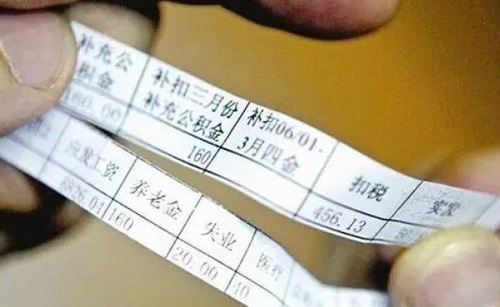 补充公积金
补扣三月份补充公积金
补扣06/01-3月四金
扣税
实发
160.00
160
456.13
应发工资
养老金
失业
医疗
6826.04
160
20.00
40